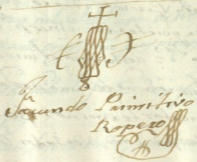 Facundo Primitivo
Ropero